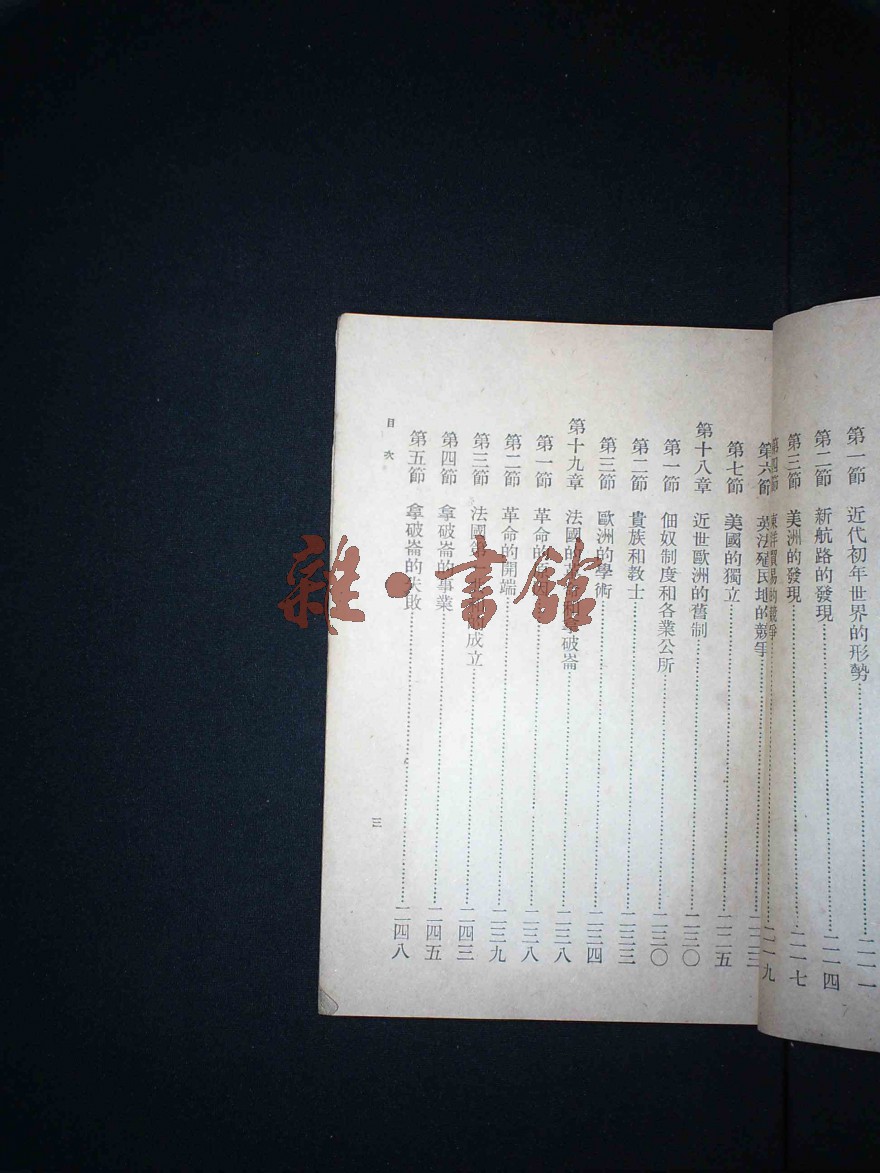 第一節 近代初年世界的形勢 二一一
第二節 新航路的發現 二一四
第三節 美洲的發現 二一七
第四節 東洋貿易的競爭 二一九
第六節 英法殖民地的競爭 二二三
第七節 美國的獨立 二二五
第十八章 近世歐洲的舊制 二三〇
第一節 佃奴制度和各業公所 二三〇
第二節 貴族和教士 二三三
第三節 歐洲的學術 二三四
第十九章 法國的 拿破崙 二三八
第一節 革命的 二三八
第二節 革命的開端 二三九
第三節 法國第 成立 二四三
第四節 拿破崙的事業 二四五
第五節 拿破崙的失敗 二四八
目次
三
雜·書館